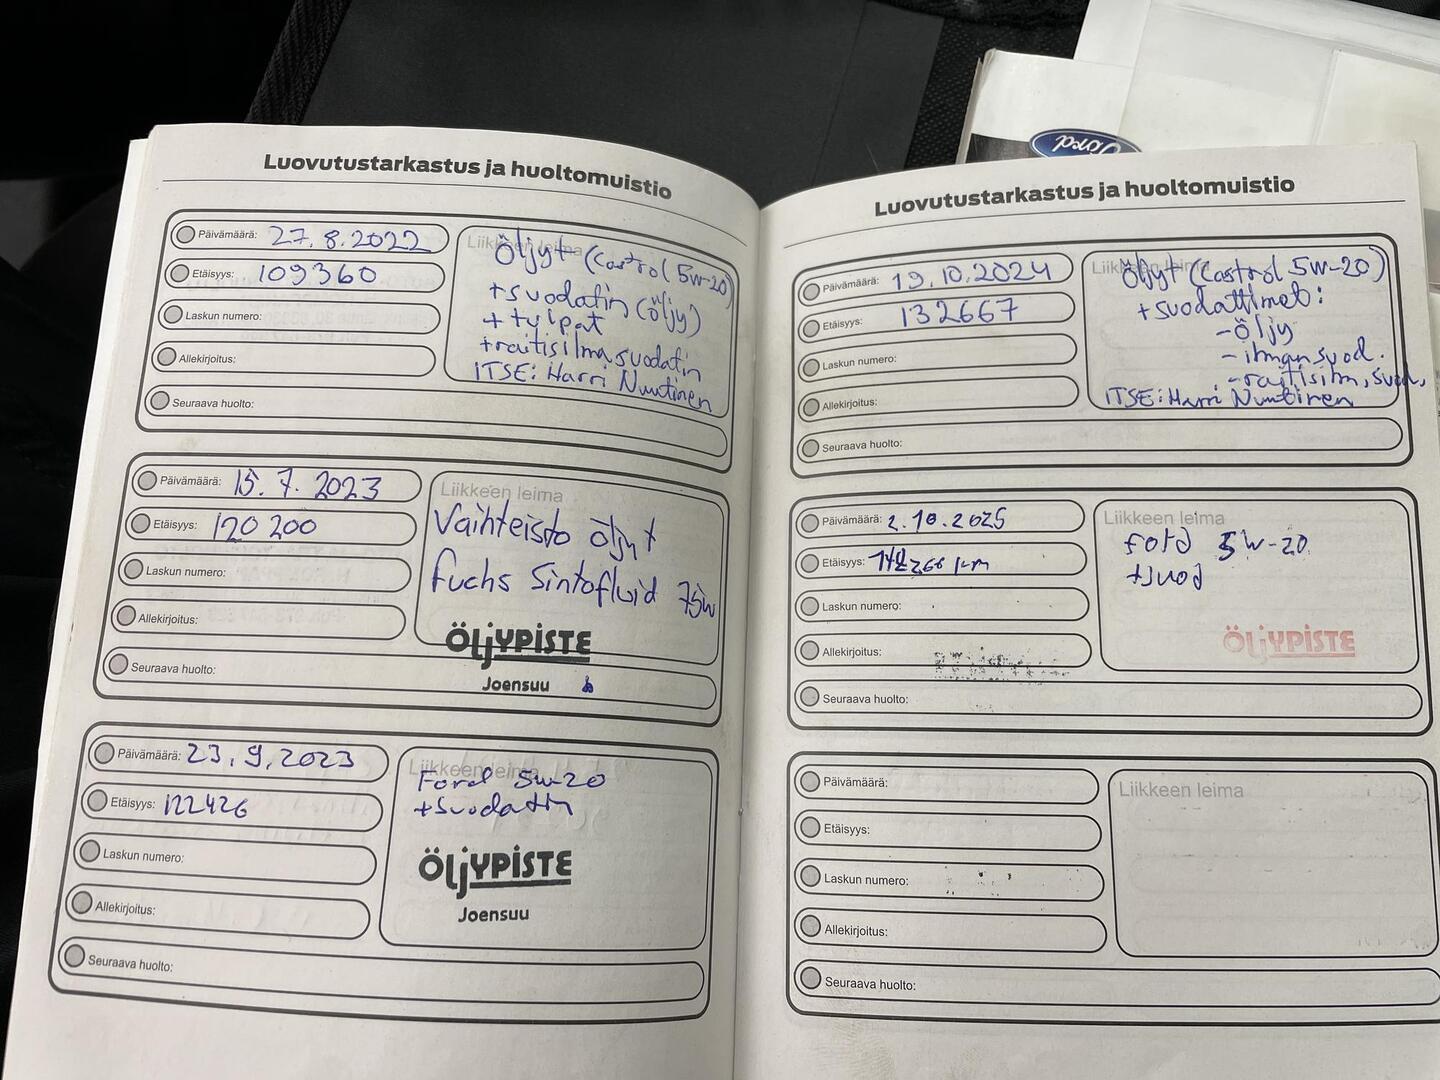 Ford
Luovutustarkastus ja huoltomuistio
Päivämäärä: 27.8.2022
Etäisyys: 109360
Laskun numero:
Allekirjoitus:
Seuraava huolto:
Liikkeen leima
Öljyt (Castrol 5W-20)
+suodatin (öljy)
+ tulpat
+raitisilmasuodatin
ITSE: Harri Nuutinen
Päivämäärä: 15.7.2023
Etäisyys: 120200
Laskun numero:
Allekirjoitus:
Seuraava huolto:
Liikkeen leima
Vaihteisto öljyt
fuchs Sintofluid 75w
ÖLJYPISTE
Joensuu
Päivämäärä: 23.9.2023
Etäisyys: 122426
Laskun numero:
Allekirjoitus:
Seuraava huolto:
Liikkeen leima
Ford 5w-20
+suodatin
ÖLJYPISTE
Joensuu
Luovutustarkastus ja huoltomuistio
Päivämäärä: 19.10.2024
Etäisyys: 132667
Laskun numero:
Allekirjoitus:
Seuraava huolto:
Liikkeen leima
Öljyt (Castrol 5W-20)
+suodattimet:
-öljy
-ilmansuod.
-raitisilm.suod.
ITSE: Harri Nuutinen
Päivämäärä: 2.10.2025
Etäisyys: 142266 km
Laskun numero:
Allekirjoitus:
Seuraava huolto:
Liikkeen leima
Ford 5W-20
+suod
ÖLJYPISTE
Päivämäärä:
Etäisyys:
Laskun numero:
Allekirjoitus:
Seuraava huolto:
Liikkeen leima